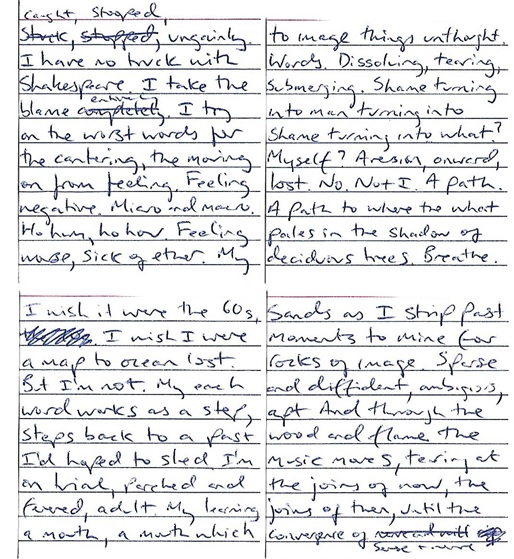 caught, stooped,
Stuck, stopped, ungainly.
I have no truck with
Shakespeare. I take the
blame completely entire. I try
on the worst words for
the cantering, the moving
on from feeling. Feeling
negative. Micro and macro.
Ho hum, ho how. Feeling
worse, sick of ether. My
to image things unthought.
Words. Dissolving, tearing,
submerging. Shame turning
into man turning into
Shame turning into what?
Myself? A version, onward,
lost. No. Not I. A path.
A path to where the what
pales in the shadow of
deciduous trees. Breathe.
I wish it were the 60s,
I wish I were
a map to ocean lost.
But I'm not. My each
word works as a step,
steps back to a past
I'd hoped to shed. I'm
on trial, parched and
adult. My learning
a mouth, a mouth which
Sands as I strip past
moments to mine for
rocks of image. Sparse
and diffident, ambigious,
apt And through the
wood and flame the
music moves, tearing at
the joins of now, the
joins of then, until the
convergence of
some + more